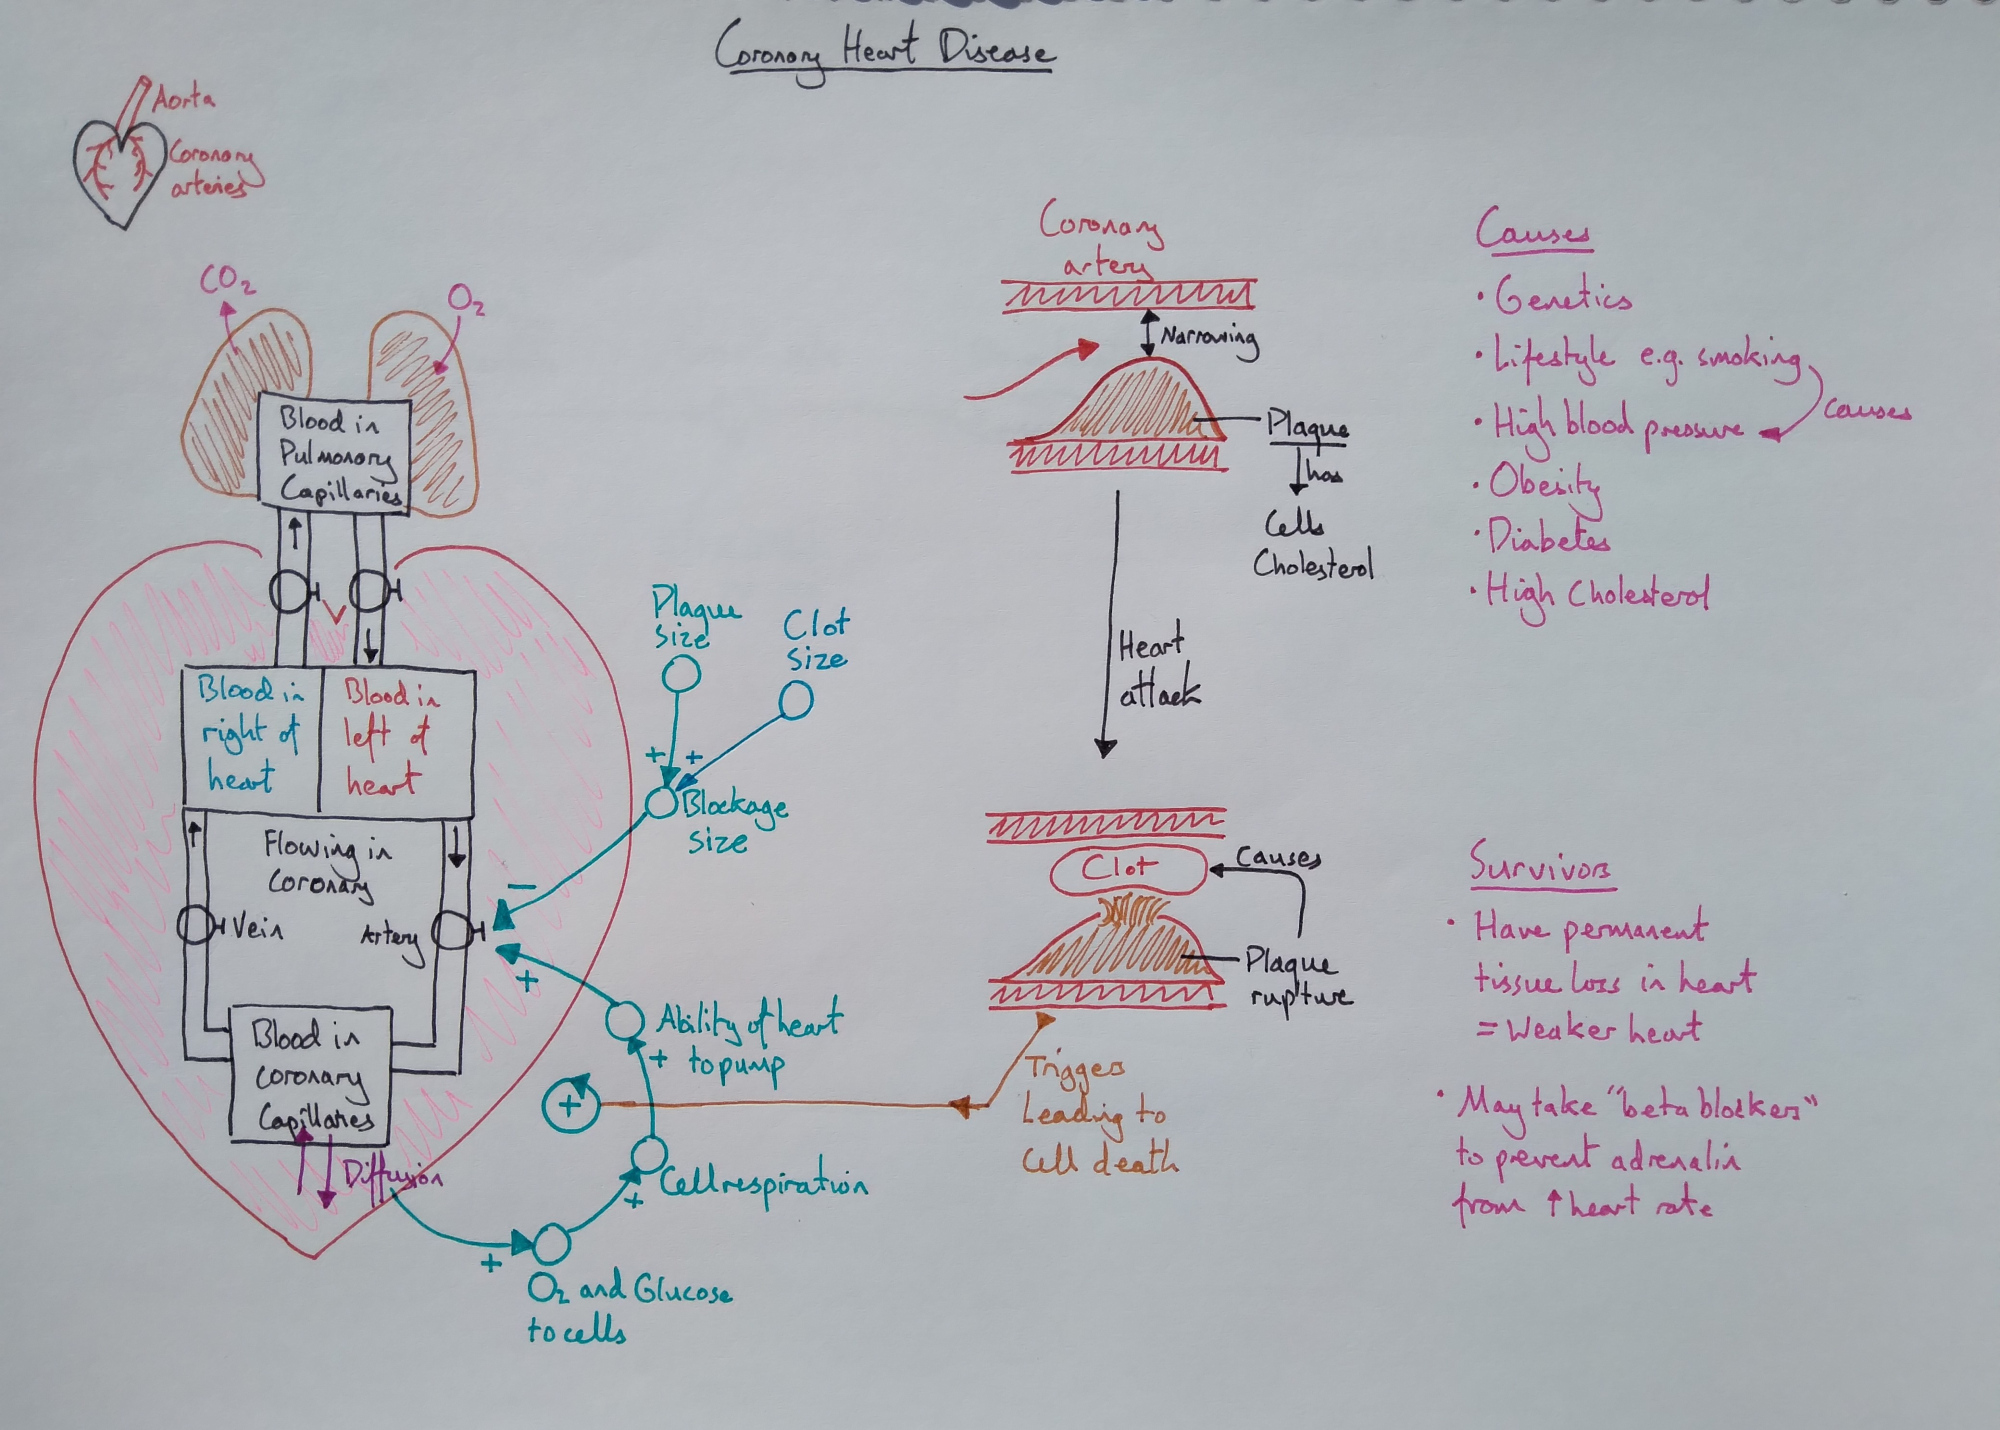 Coronary Heart Disease
Aorta
Coronary
arteries
CO₂
O₂
Blood in
Pulmonary
Capillaries
Blood in
right of
heart
Blood in
left of
heart
Flowing in
Coronary
Vein
Artery
Blood in
coronary
Capillaries
Diffusion
Plaque
size
Clot
size
+
+
Blockage
size
−
+
Ability of heart
to pump
+
+
Cell respiration
+
+
O₂ and Glucose
to cells
Coronary
artery
Narrowing
Plaque
has
Cells
Cholesterol
Heart
attack
Clot
causes
Plaque
rupture
Triggers
Leading to
Cell death
Causes
• Genetics
• Lifestyle e.g. smoking
causes
• High blood pressure
• Obesity
• Diabetes
• High Cholesterol
Survivors
• Have permanent
tissue loss in heart
= Weaker heart
• May take "beta blockers"
to prevent adrenalin
from ↑ heart rate